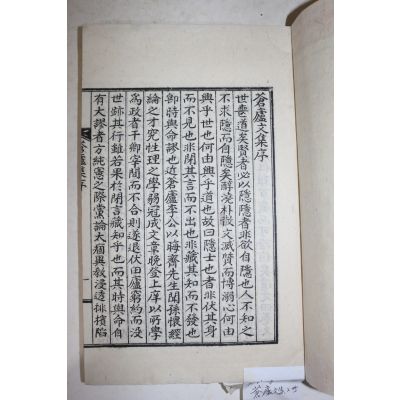 蒼廬文集序
世喪道矣賢者必以隱隱者非欲自隱也人不知之
不求隱而自隱矣醇澆朴散文滅質而博溺心何由
興乎世也何由興乎道也故曰隱士也者非伏其身
而不見也非閉其言而不出也非藏其知而不發也
卽時與命謬也近蒼廬李公以晦齋先生聞孫懷經
論之才究性理之學弱冠成文章晩登上庠以所學
爲政者干卿宰間而不合則遂退伏田廬窮約而沒
世跡其行雖若果於閉言藏知乎也而其時與命自
有大謬者方純憲之際黨論大痼異敎浸透徘檳陷
蒼廬集序
一